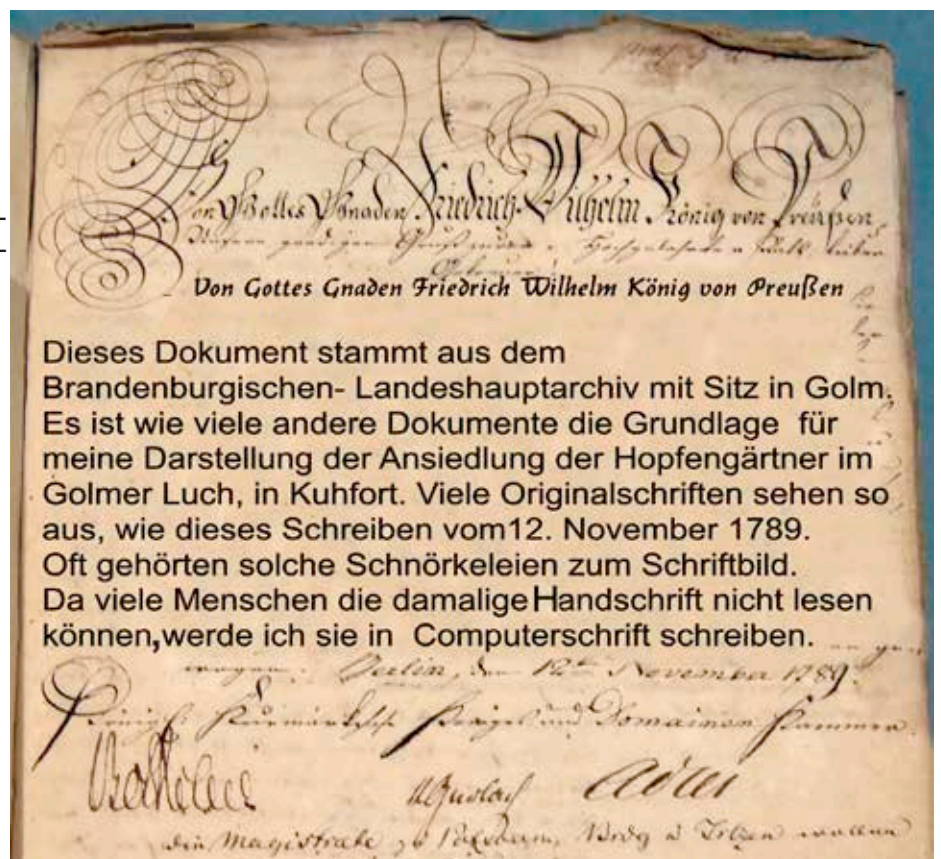 Von Gottes Gnaden Friedrich Wilhelm König von Preußen
Von Gottes Gnaden Friedrich Wilhelm König von Preußen
Dieses Dokument stammt aus dem
Brandenburgischen- Landeshauptarchiv mit Sitz in Golm.
Es ist wie viele andere Dokumente die Grundlage für
meine Darstellung der Ansiedlung der Hopfengärtner im
Golmer Luch, in Kuhfort. Viele Originalschriften sehen so
aus, wie dieses Schreiben vom12. November 1789.
Oft gehörten solche Schnörkeleien zum Schriftbild.
Da viele Menschen die damalige Handschrift nicht lesen
können,werde ich sie in Computerschrift schreiben.
Berlin, den 12ten November 1789.
Königl. Kammer